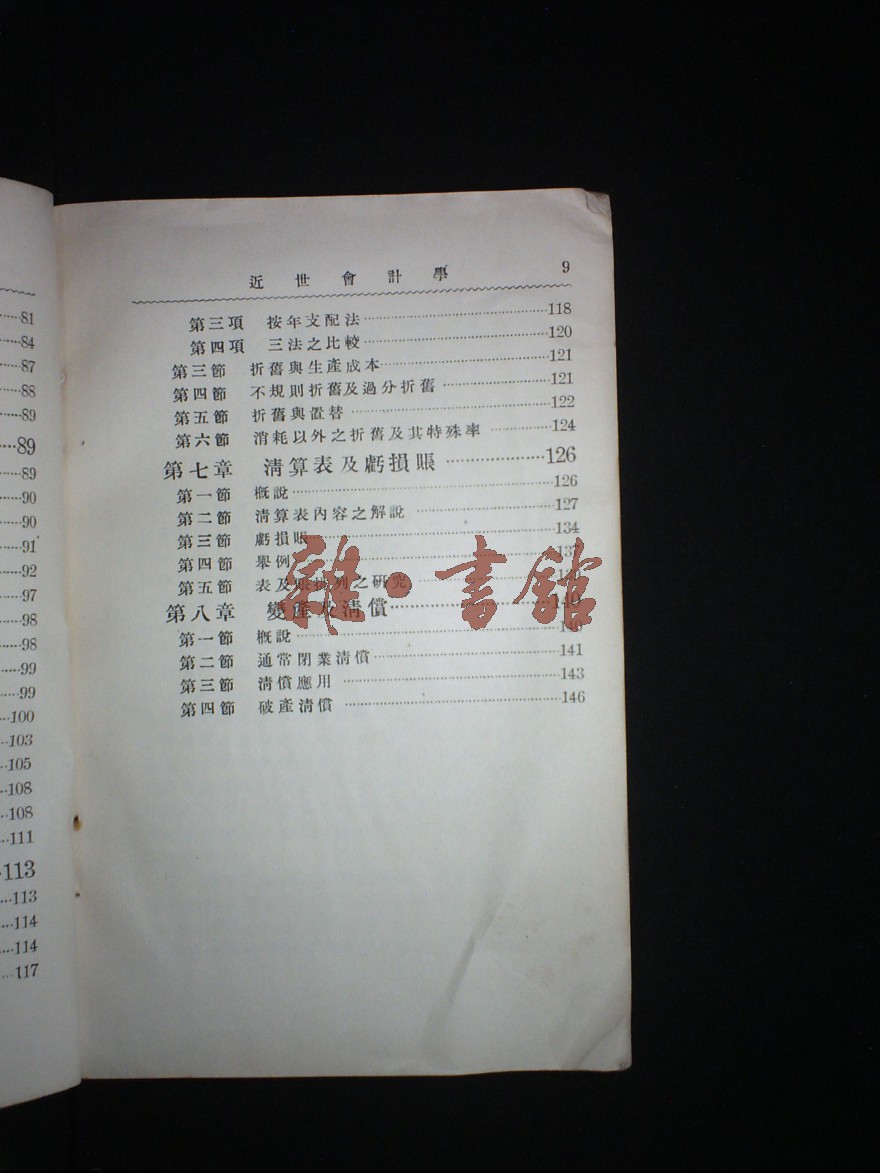 81
84
87
88
89
89
89
90
90
91
92
97
98
98
99
99
100
103
105
108
108
111
113
113
114
114
117
近世會計學 9
第三項 按年支配法 118
第四項 三法之比較 120
第三節 折舊與生產成本 121
第四節 不規則折舊及過分折舊 121
第五節 折舊與置替 122
第六節 消耗以外之折舊及其特殊率 124
第七章 淸算表及虧損賬 126
第一節 概說 126
第二節 淸算表內容之解說 127
第三節 虧損賬 134
第四節 舉例
第五節 表及賬排列之研究
第八章 變產及淸償 140
第一節 概說
第二節 通常閉業淸償 141
第三節 淸償應用 143
第四節 破產淸償 146
雜·書館